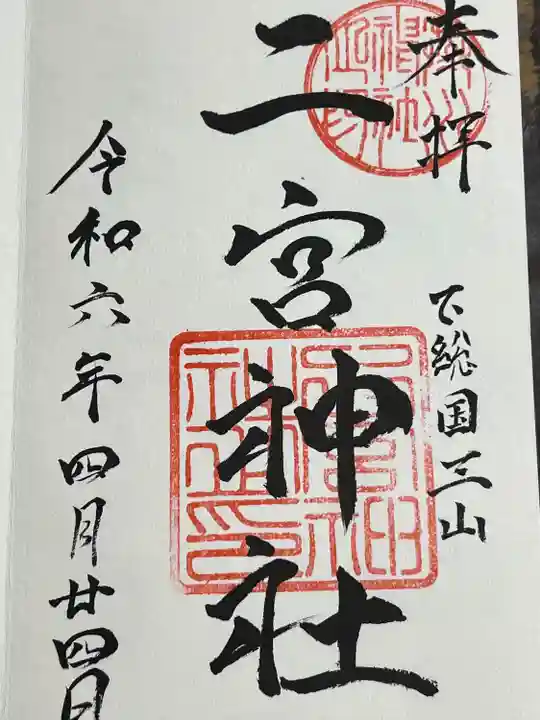 奉拝
下総国三山
二宮神社
令和六年四月廿四日